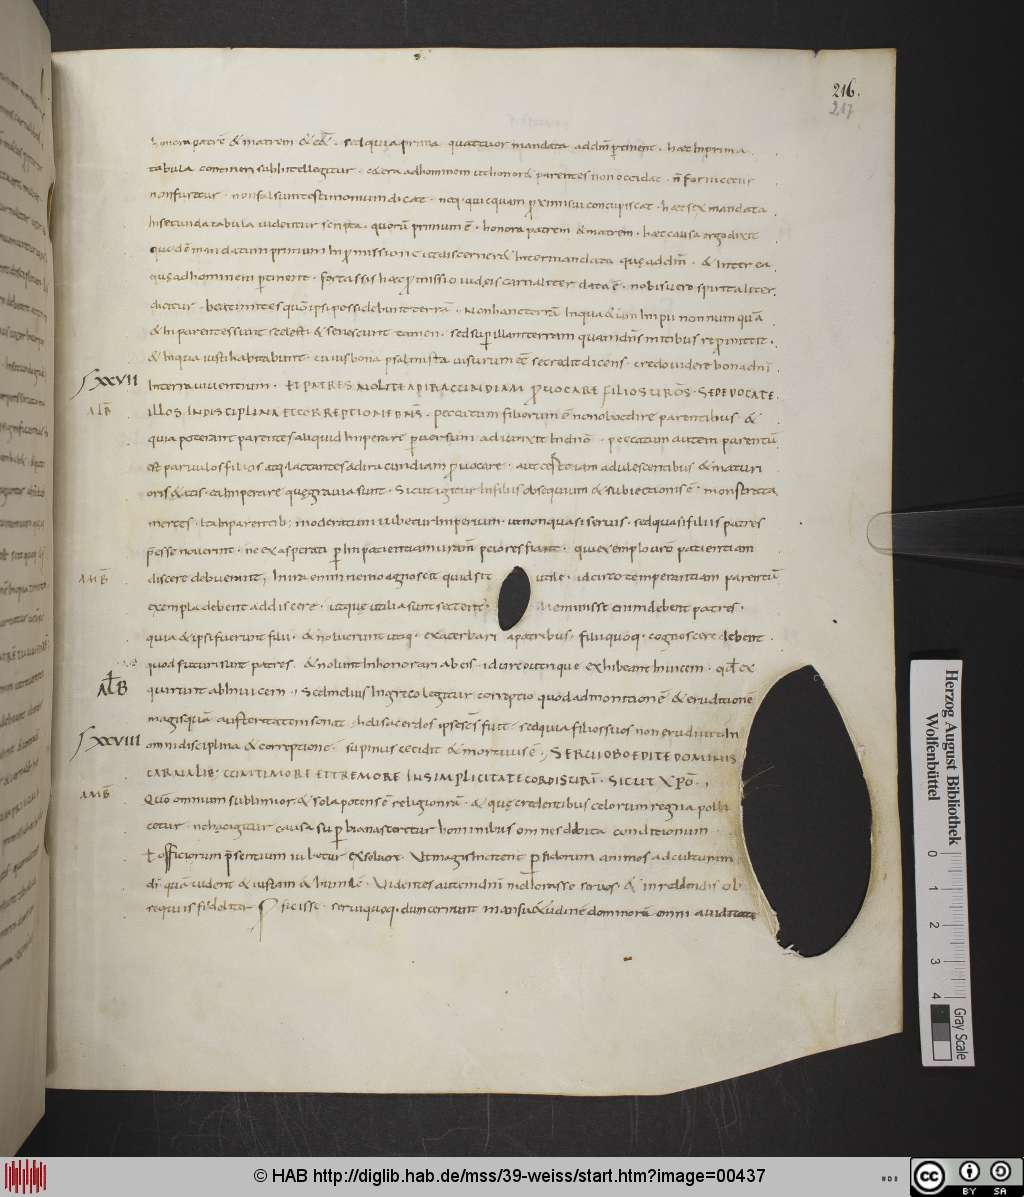 216.
217
honora patrē & matrem & cēt . sed quia prima quattuor mandata ad dm̄ ꝑtinent . haec in prima
tabula contineri subintellegitur . cetera ad hominem ut honor& parentes non occidat . n̄ fornicetur
non furetur . non falsum testimonium dicat . neq; quicquam ꝓximi sui concupiscat . haec sex mandata
in secunda tabula uidentur scripta . quorū primum ē . honora patrem & matrem . hac causa ergo dixit
quod ē mandatum primum in ꝓmissione ut discerner& inter mandata quę ad dm̄ . & inter ea
quę ad hominem ꝑtinent . fortassis haec ꝓmissio iudeis carnaliter data ē . nobis uero spiritaliter
dicitur . beati mites quō ipsi possidebunt terrā . Non hanc terrā in qua &iam impii non numquā
& in parentes sunt scelesti & senescunt tamen . sed suꝑ illam terram quam dn̄s mitibus repromittit .
& in qua iusti habitabunt . cuius bona psalmista uisurum eē se credit dicens . credo uidere bona dn̄i
SXXVII
in terra uiuentium . ET PATRES NOLITE AD IRACUNDIAM ꝓUOCARE FILIOS UROS . SED EDUCATE
ALB
ILLOS IN DISCIPLINA ET CORREPTIONE DNI . peccatum filiorum ē non oboedire parentibus . &
quia poterant parentes aliquid imperare ꝑuersum adiunxit in dnō . peccatum autem parentū
est paruulos filios atq; lactantes ad iracundiam ꝓuocare . aut certe iam adulescentibus & maturi
oris &atis . ea imperare quę grauia sunt . Sicut igitur in filiis obsequium & subiectionis ē monstrata
merces . ita in parentib; moderatum iubetur imperium . ut non quasi seruis . sed quasi filiis patres
p̄esse nouerint . ne exasperati ꝑ inpatientiam uram peiores fiant . qui exemplo uro patientiam
AMB
discere debuerunt ; In iuuenum nemo agnoscit quid sit utile . idcirco temperantiam parentū
exempla debent addiscere . utque utilia sunt sectent . Meminisse enim debent patres .
quia & ipsi fuerunt filii . & noluerunt utiq; exacerbari a patribus . filii quoq; cognoscere debent
quod futuri sunt patres . & nolunt inhonorari ab eis . id ergo uterque exhibeant inuicem . qd ex
ALB
quirunt ab inuicem . Sed melius in greco legitur correptio quod admonitionē & eruditionē
magis quā austeritatem sonat . heli sacerdos ipse scs fuit . sed quia filios suos non erudiuit in
SXXVIII
omni disciplina & correptione . supinus cecidit & mortuus ē . SERUI OBOEDITE DOMINIS
CARNALIB; CUM TIMORE ET TREMORE IN SIMPLICITATE CORDIS URI . SICUT XPO . ,
AMB
Quō omnium sublimior & sola potens ē religio nra . & quę credentibus celorum regna polli
cetur . ne hac igitur causa suꝑbia nasceretur hominibus omnes debita conditionum
& officiorum p̄sentium iubetur exsoluere . Ut magis incitent ꝑfidorum animos ad culturam
dī quā uident & iustam & humilē . Uidentes autem dn̄i meliorasse seruos . & in reddendis ob
sequiis fideliter ꝓfecisse . serui quoq; dum cernunt mansu&udinē dominorū omni auiditate
Herzog August Bibliothek
Wolfenbüttel
0 1 2 3 4
Gray Scale
© HAB http://diglib.hab.de/mss/39-weiss/start.htm?image=00437
cc BY SA